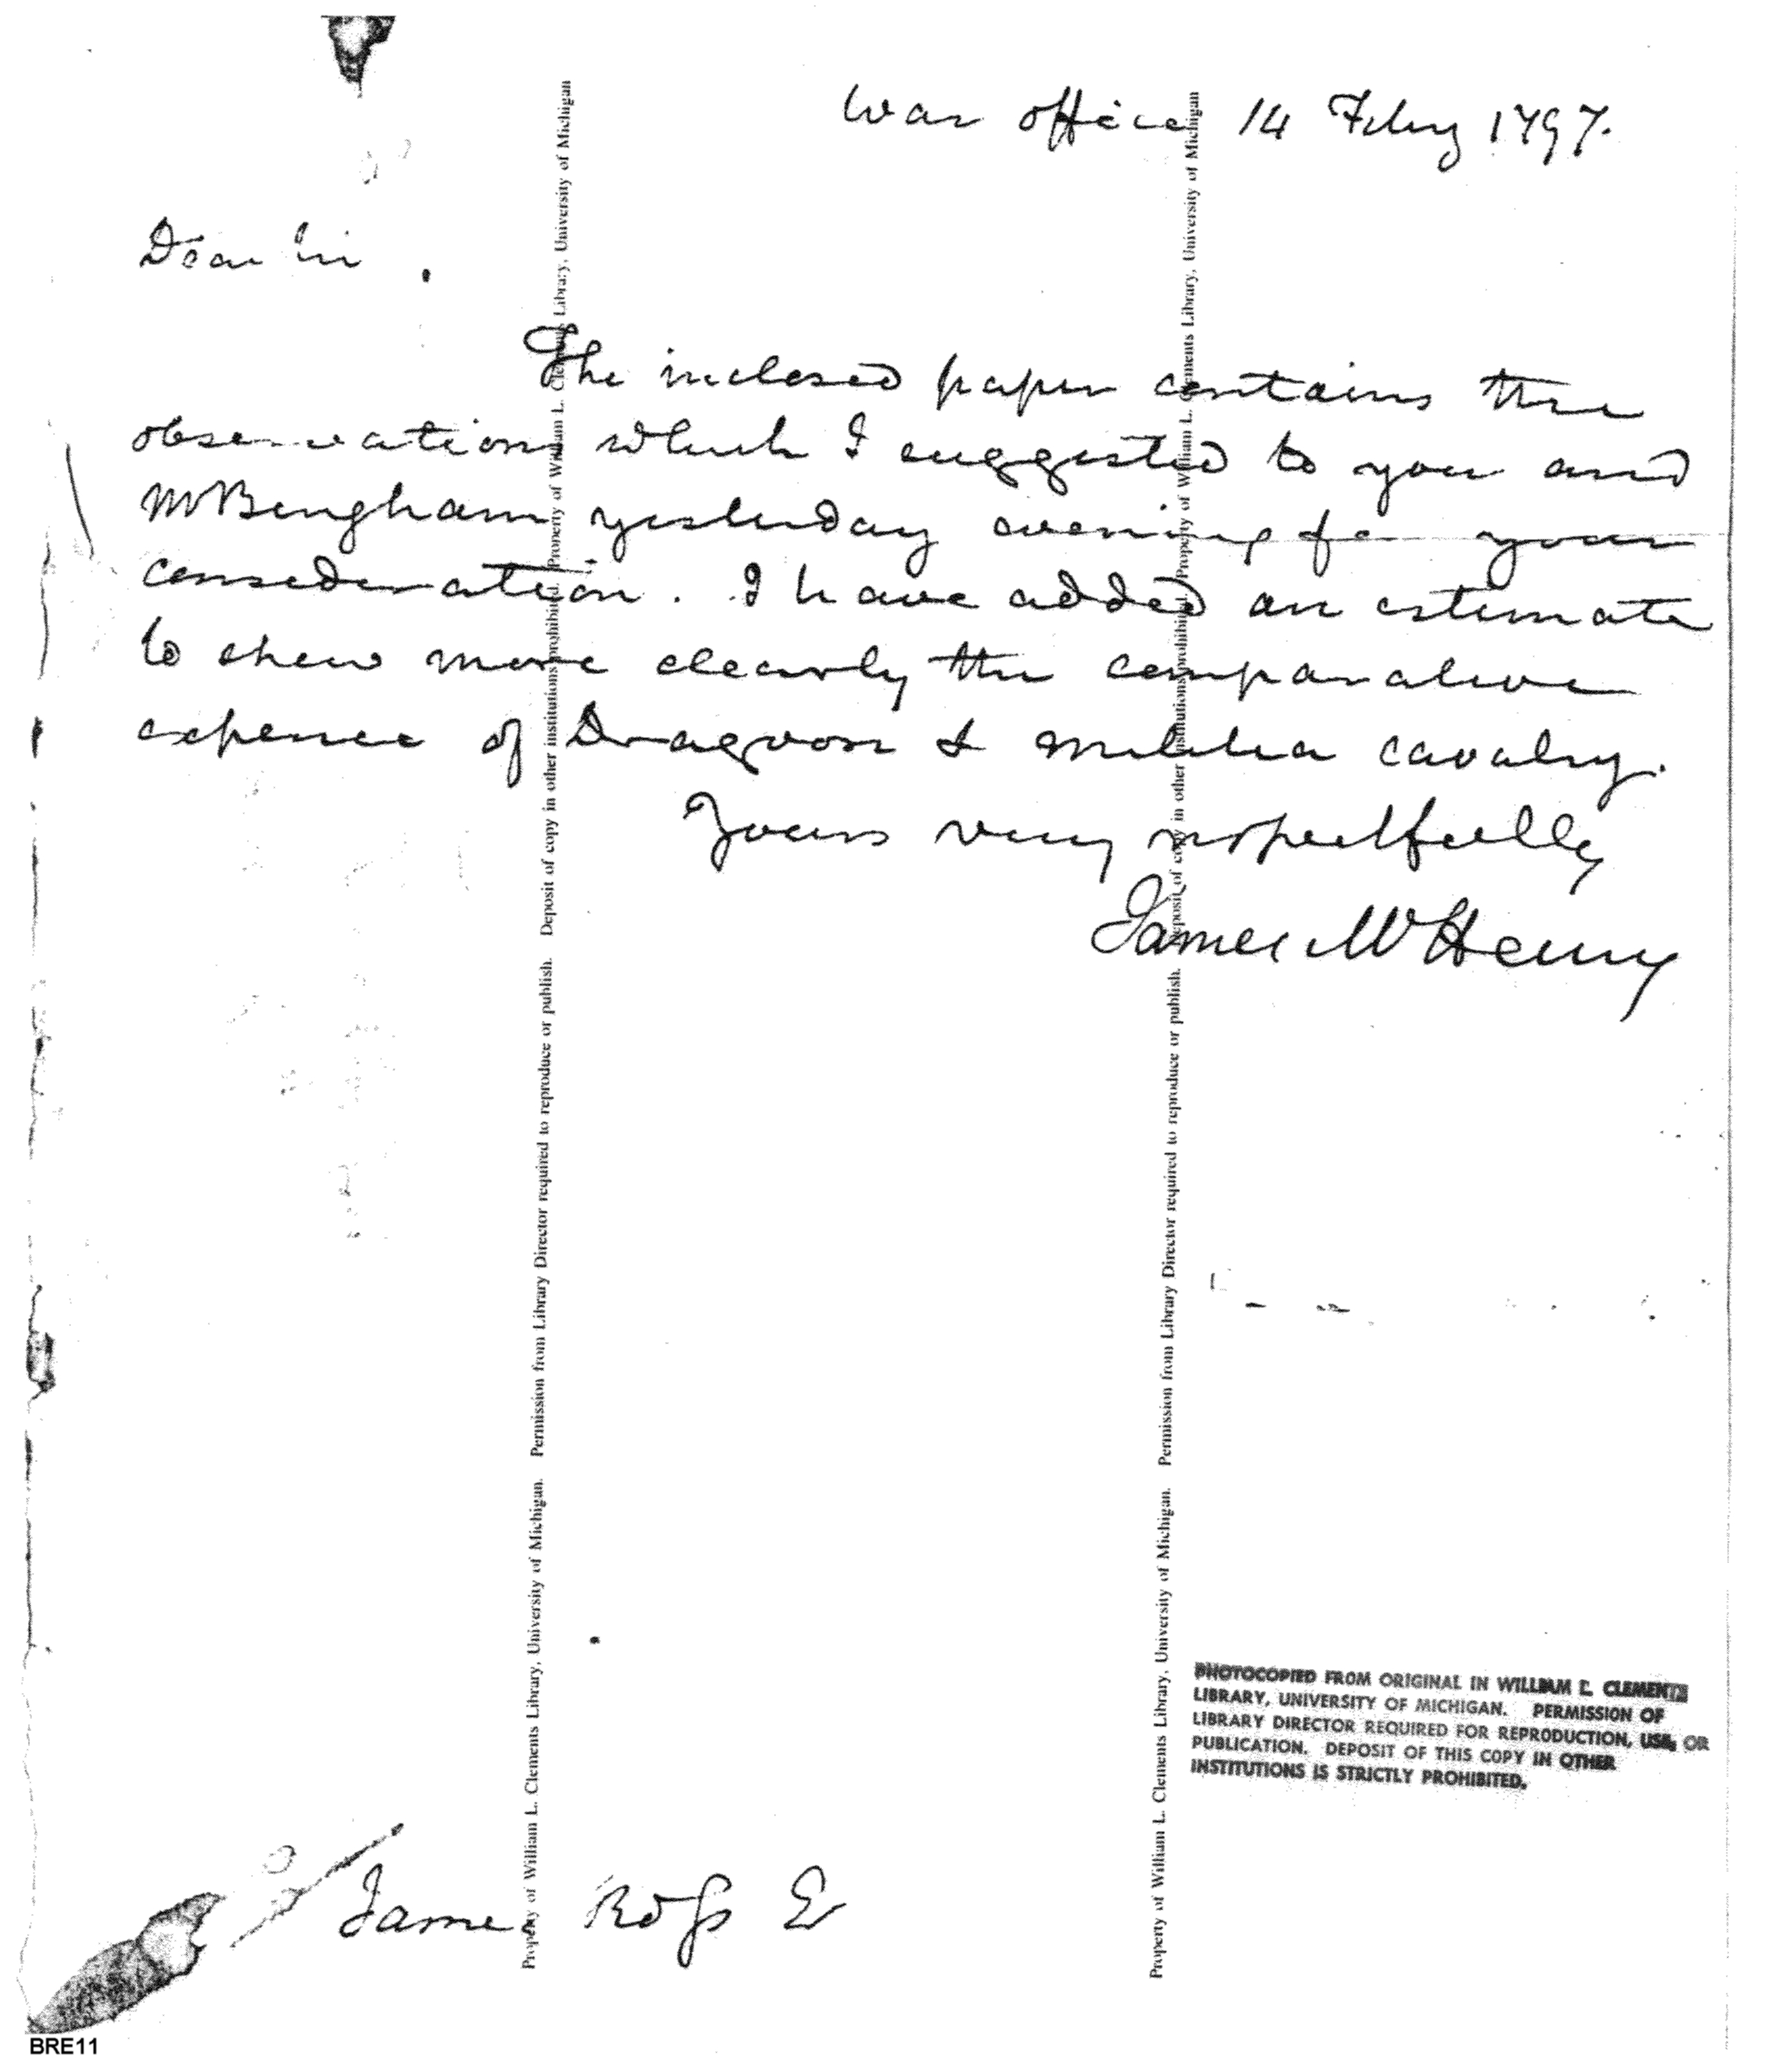 War office 14 Feby 1797.
Dear Sir
The inclosed paper contains the
observations which I suggested to you and
Mr Bingham yesterday evening for your
consideration. I have added an estimate
to shew more clearly the comparative
expence of Dragoons & militia cavalry.
Yours very respectfully
James McHenry
James Ross E
Property of William L. Clements Library, University of Michigan. Permission from Library Director required to reproduce or publish. Deposit of copy in other institutions prohibited. Property of William L. Clements Library, University of Michigan
Property of William L. Clements Library, University of Michigan. Permission from Library Director required to reproduce or publish. Deposit of copy in other institutions prohibited. Property of William L. Clements Library, University of Michigan
PHOTOCOPIED FROM ORIGINAL IN WILLIAM L. CLEMENTS
LIBRARY, UNIVERSITY OF MICHIGAN. PERMISSION OF
LIBRARY DIRECTOR REQUIRED FOR REPRODUCTION, USE, OR
PUBLICATION. DEPOSIT OF THIS COPY IN OTHER
INSTITUTIONS IS STRICTLY PROHIBITED.
BRE11